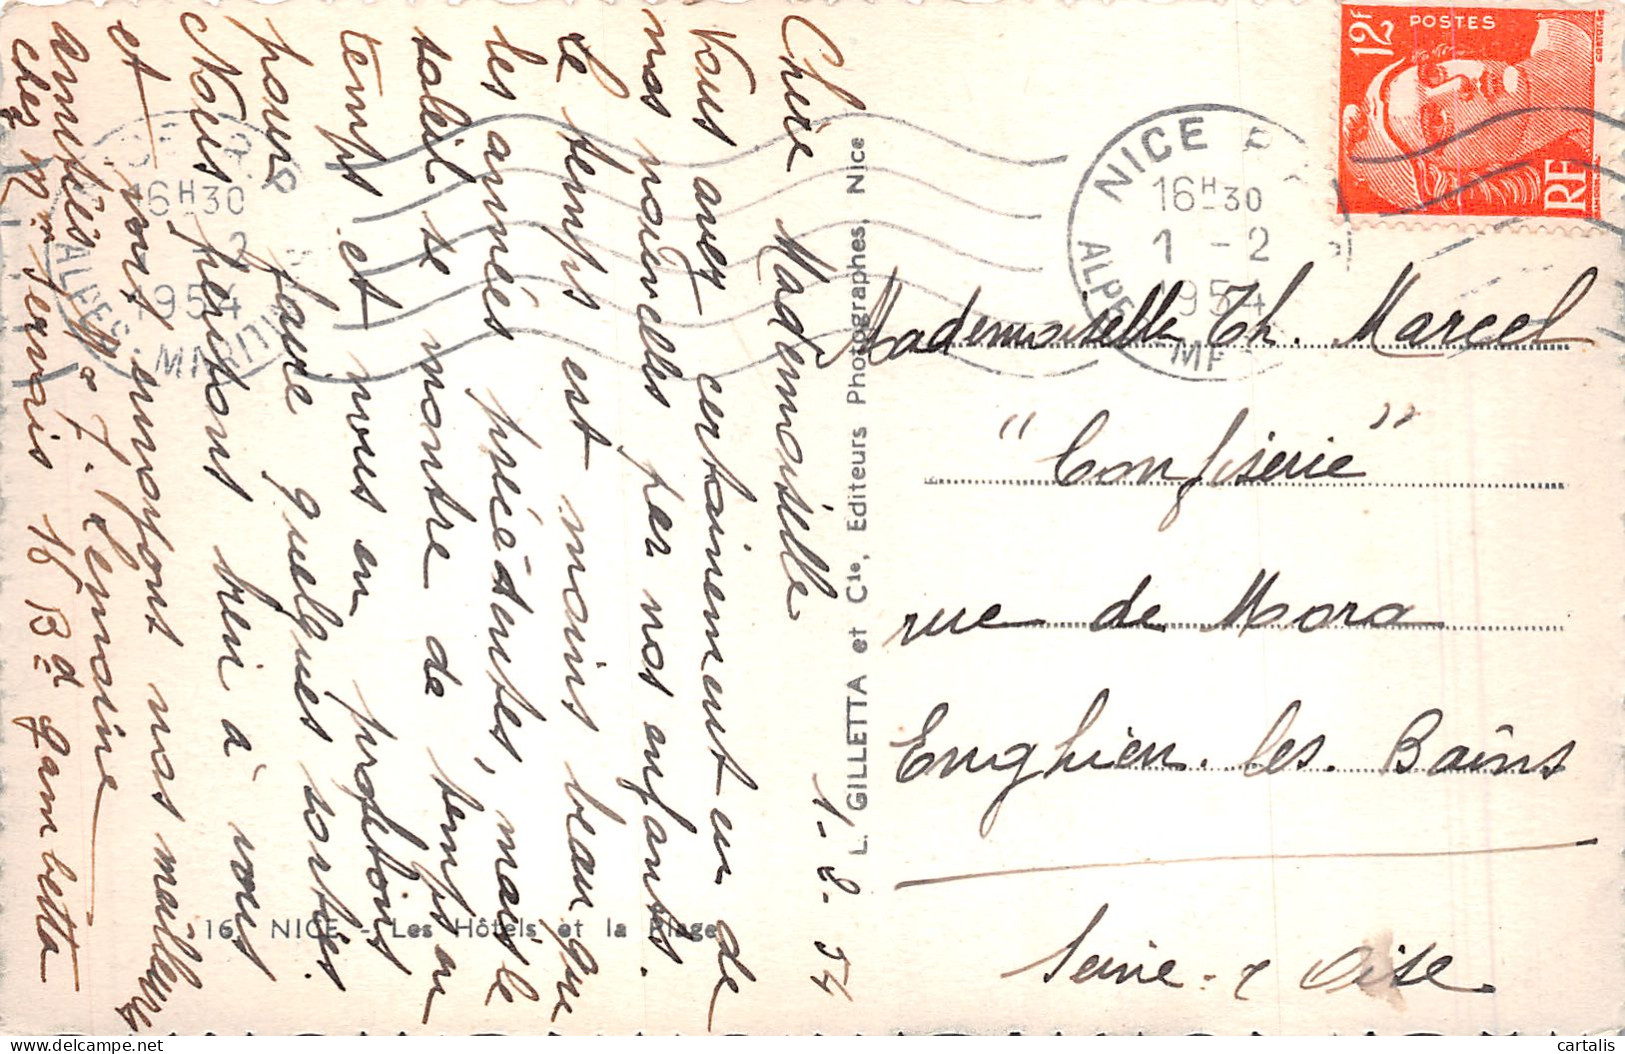 1-2-54
Chère Mademoiselle
Vous avez certainement eu de
nos nouvelles par nos enfants.
Le temps est moins beau que
les années précédentes, mais le
soleil se montre de temps en
temps et nous en profitons
pour faire quelques sorties.
Nous pensons bien à vous
et vous envoyons nos meilleures
amitiés
Lemoine
chez Mme Servais 16 Bd Gambetta
16 NICE - Les Hôtels et la Plage
L. GILLETTA et Cie, Editeurs Photographes, Nice
12F POSTES
RF
NICE
16H30
1-2
1954
ALPES MARITIMES
NICE
16H30
1-2
1954
ALPE
Mademoiselle Th. Marcel
"Confiserie"
rue de Mora
Enghien-les-Bains
Seine-&-Oise
cartalis